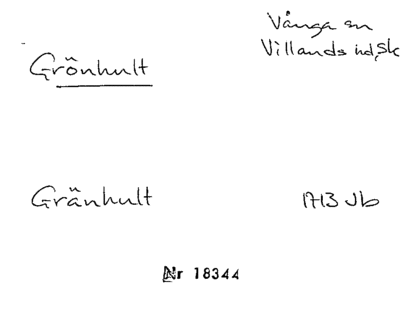 Vånga sn
Grönhult
Villands hd, Sk
Gränhult
1713 Jb
Nr 18344